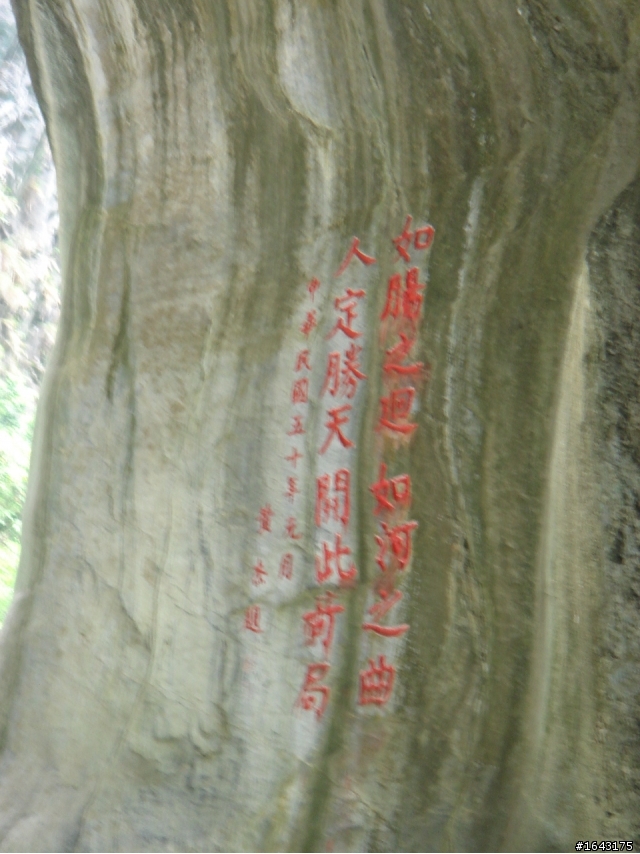 如腸之迴 如河之曲
人定勝天 開此奇局
中華民國五十年元月
黃杰題
#1643175